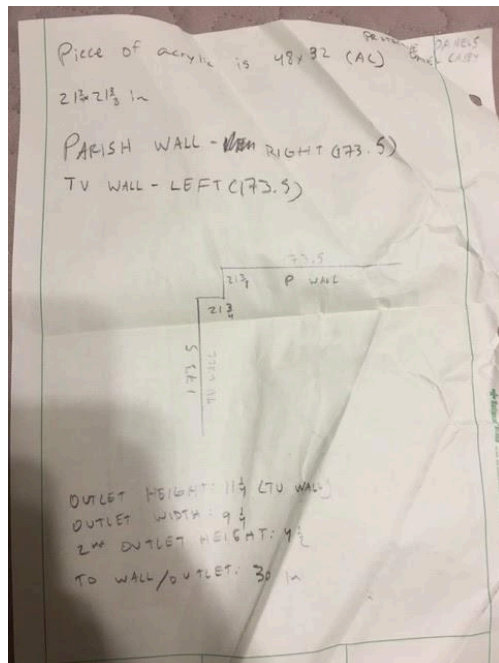 Piece of acrylic is 48x32 (AC)
PARISH WALL - RIGHT (173.5)
TV WALL - LEFT (173.5)
73.5
21 3/4 P WALL
21 3/4
173.5
OUTLET HEIGHT: 11 1/4 (TV WALL)
OUTLET WIDTH: 9 1/4
2ND OUTLET HEIGHT: 4 1/2
TO WALL/OUTLET: 30 in